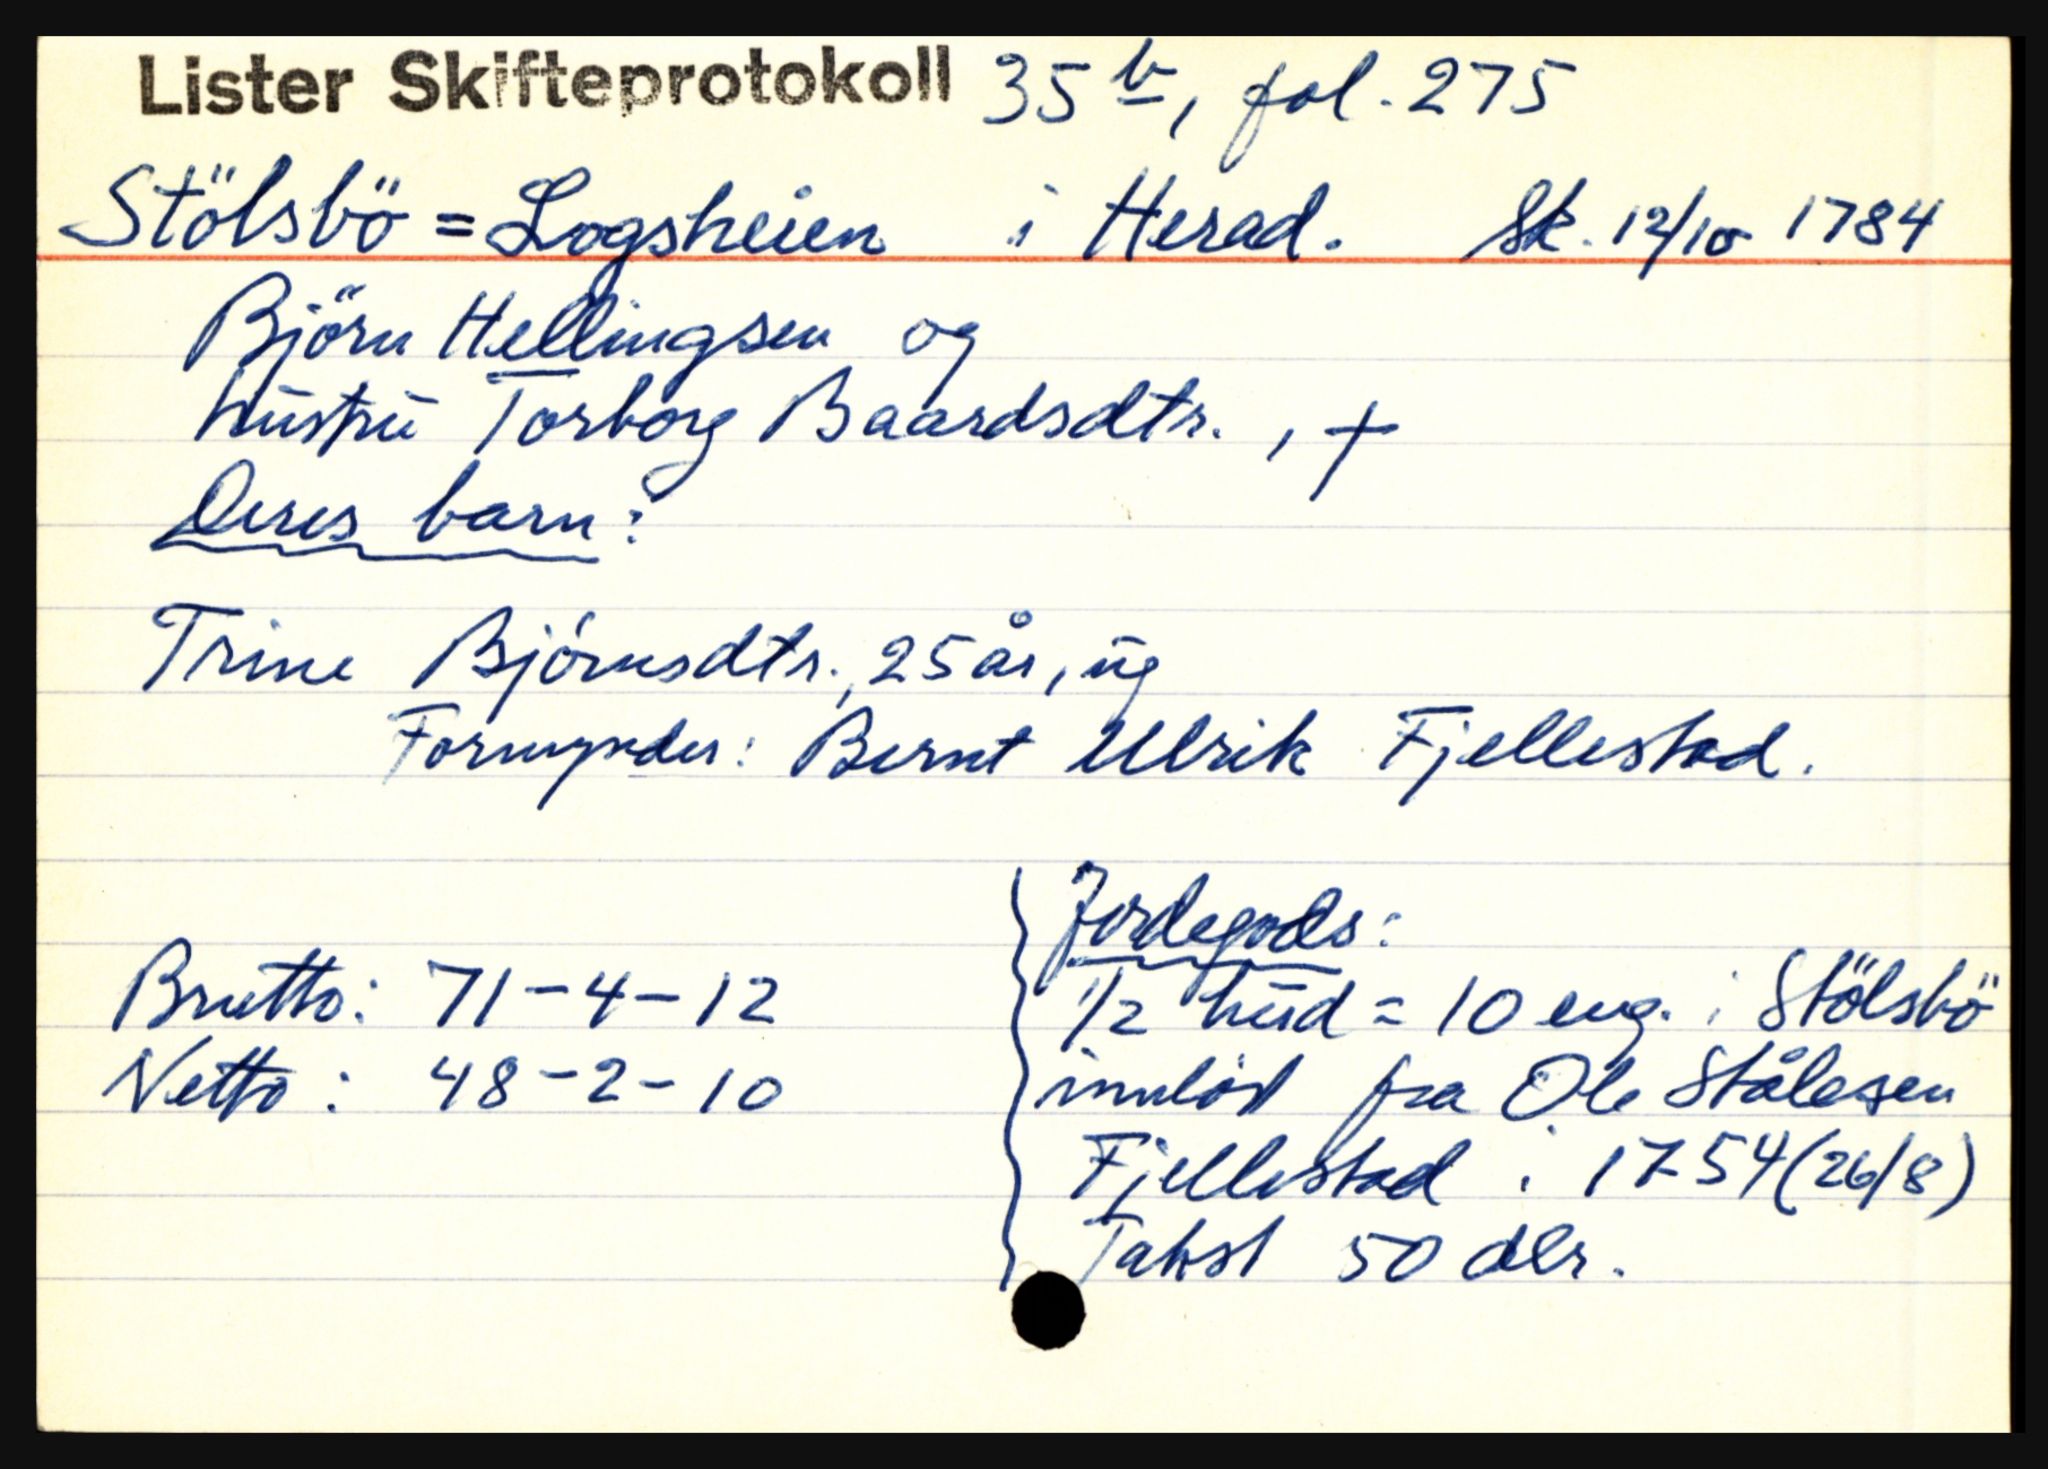 Lister Skifteprotokoll 35 b, fol. 275
Stölsbö = Logsheien i Herad. Sk. 12/10 1784
Björn Hellingsen og
hustru Torborg Baardsdtr., †
Deres barn:
Trine Björnsdtr., 25 år, ug
Formynder: Bernt Ulrik Fjellestad.
Brutto: 71-4-12
Netto: 48-2-10
Jordegods:
1/2 hud = 10 eng. i Stölsbö
innlöst fra Ole Stålesen
Fjellestad i 1754 (26/8)
Takst 50 dlr.